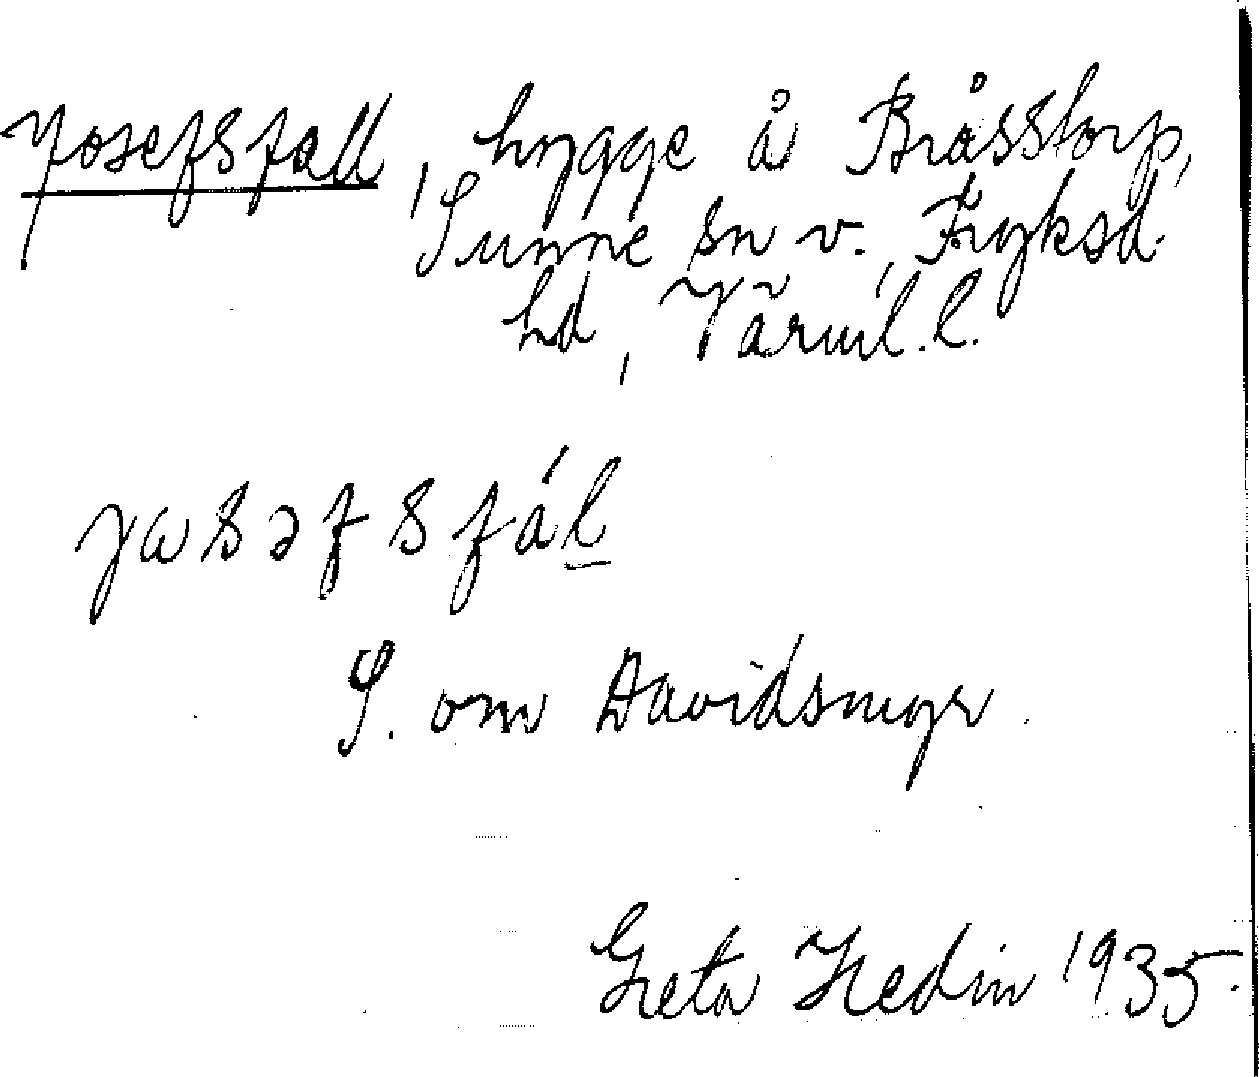 Josefsfall, bygge å Bråsstorp,
Sunne sn v., Fryksd
hd, Värml. l.
jɷsəfsfál
S. om Davidsmyr.
Greta Hedin 1935.